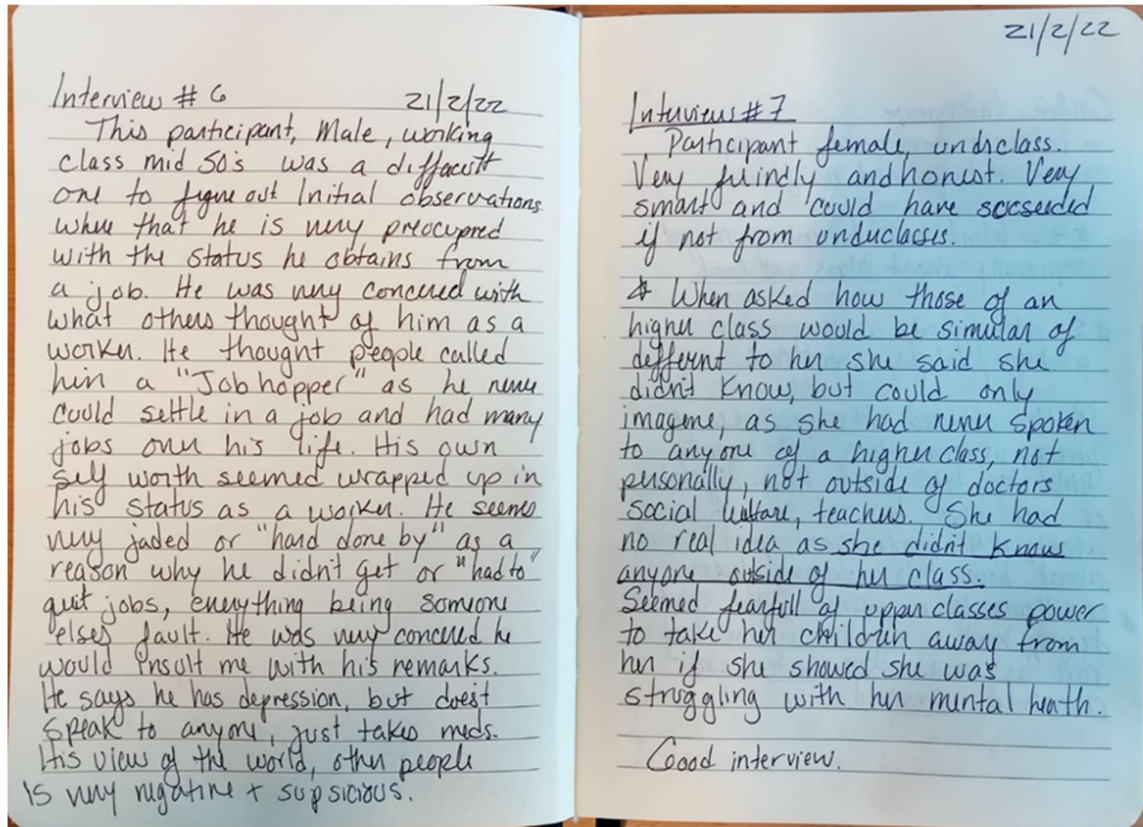 Interview # 6 21/2/22
This participant, Male, working
class mid 50's was a diffacult
one to figure out Initial observations
where that he is very preocupied
with the status he obtains from
a job. He was very concered with
what others thought of him as a
worker. He thought people called
him a "Job hopper" as he never
could settle in a job and had many
jobs over his life. His own
self worth seemed wrapped up in
his status as a worker. He seems
very jaded or "hard done by" as a
reason why he didn't get or "had to"
quit jobs, everything being someone
elses fault. He was very concered he
would insult me with his remarks.
He says he has depression, but does't
speak to anyone, just takes meds.
His view of the world, other people
is very negative + supsicious.
21/2/22
Interview # 7
Participant female, underclass.
Very friendly and honest. Very
smart and could have socseeded
if not from underclasses.
* When asked how those of an
higher class would be simular of
differnt to her she said she
didn't know, but could only
imagine, as she had never spoken
to anyone of a higher class, not
personally, not outside of doctors
social welfare, teachers. She had
no real idea as she didn't know
anyone outside of her class.
Seemed fearfull of upper classes power
to take her children away from
her if she showed she was
struggling with her mental heath.
Good interview.